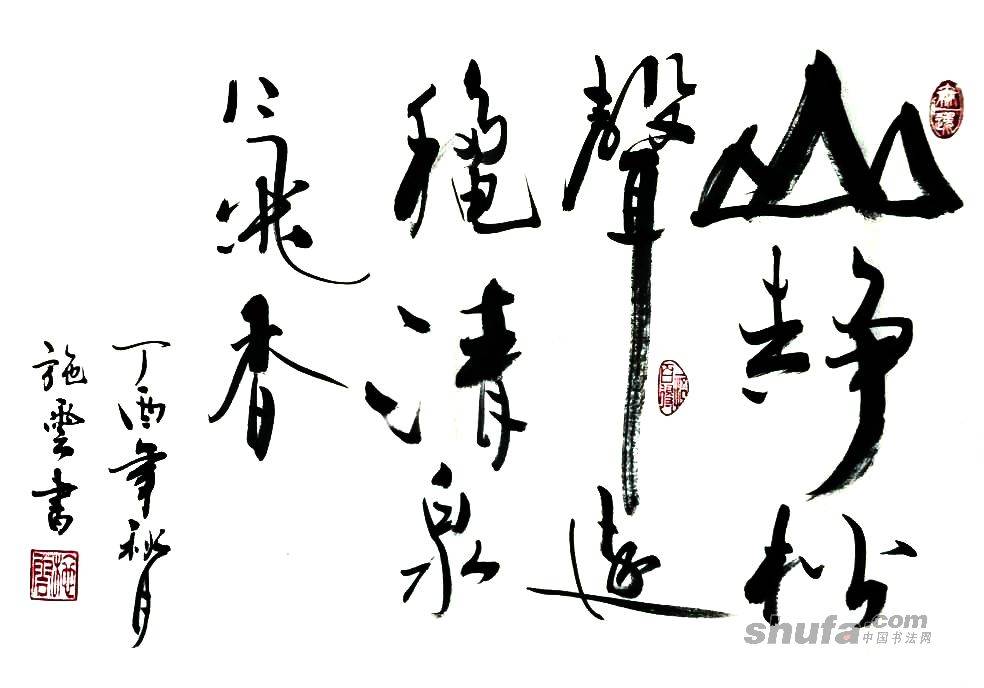 山静松
聲遠
穐清泉
氣香
丁酉年秋月
施雲書
shufa.com
中国书法网